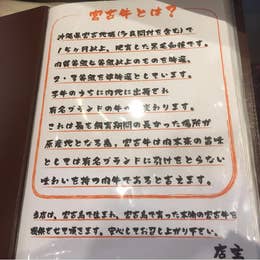 宮古牛とは？
沖縄県宮古地域(多良間村を含む)で
15ヶ月以上、肥育した黒毛和種です。
肉質等級 等級以上のものを 選、
2・1等級を 選としています。
子牛のうちに内地に出荷され
有名ブランドの牛 変わります。
これは最も飼育期間の長かった場所が
原産地となる為、宮古牛は肉本来の旨味
としては有名ブランドに引けをとらない
味わいを持つ肉牛であると言えます。
当店は、宮古島で生まれ、宮古島で育った本物の宮古牛を
提供させて頂きます。安心してお召し上がり下さい。
店主